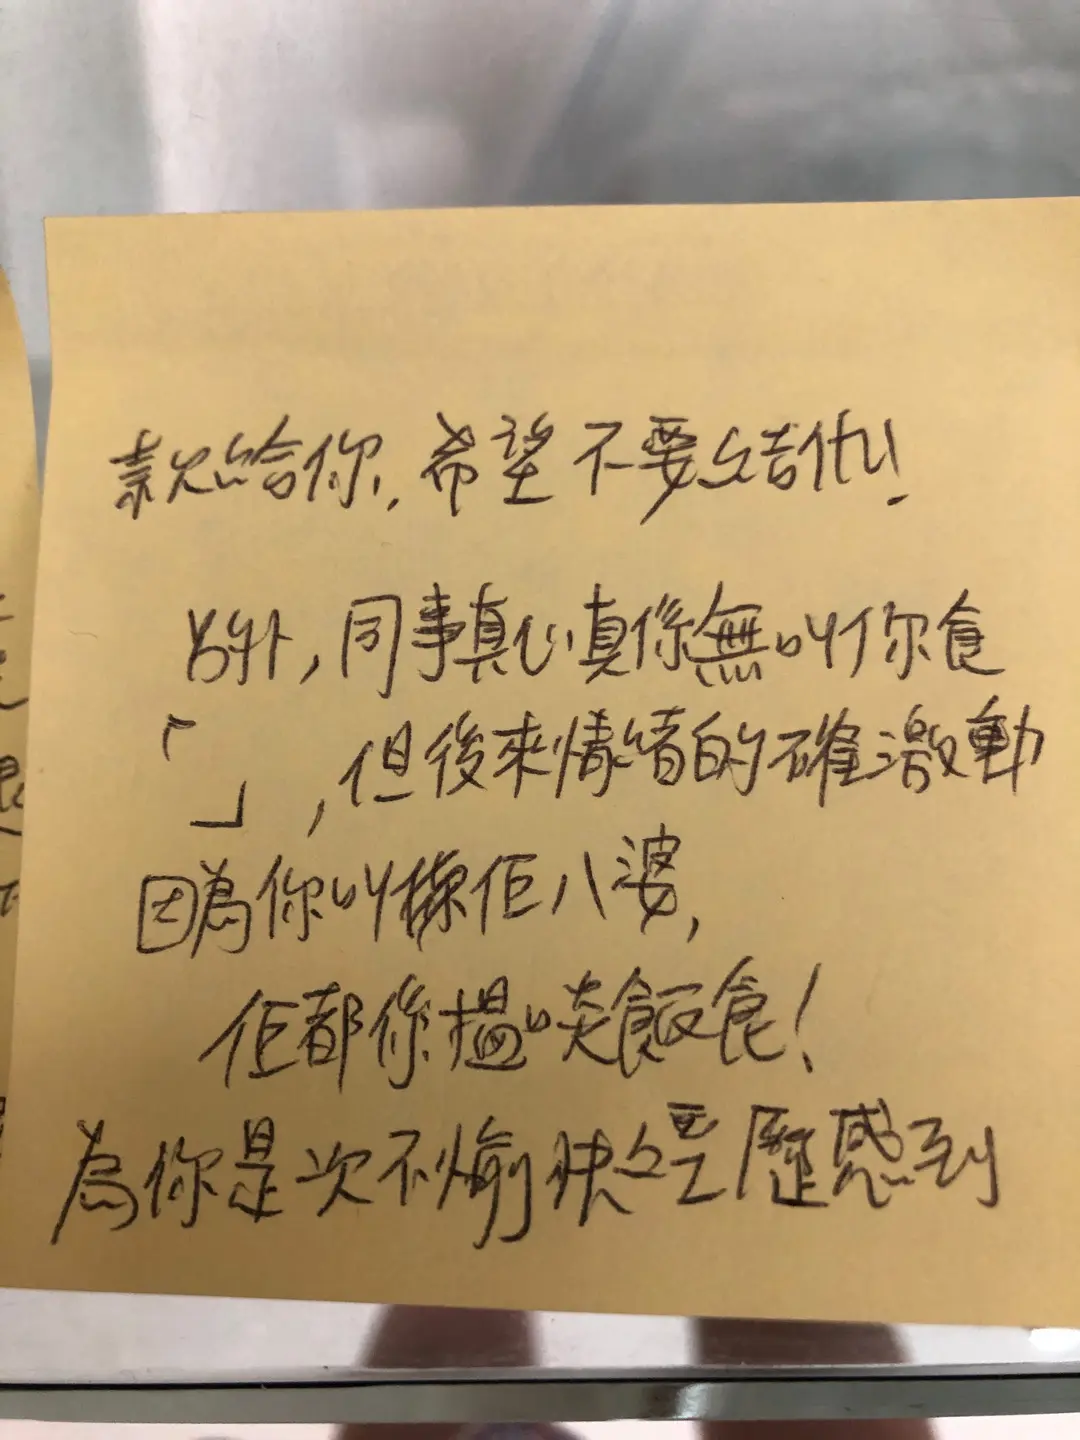 款給你,希望不要結仇!
另外,同事真心真係無叫你食
「
」,但後來情緒的確激動
因為你叫樣佢八婆,
佢都係搵啖飯食!
為你是次不愉快經歷感到